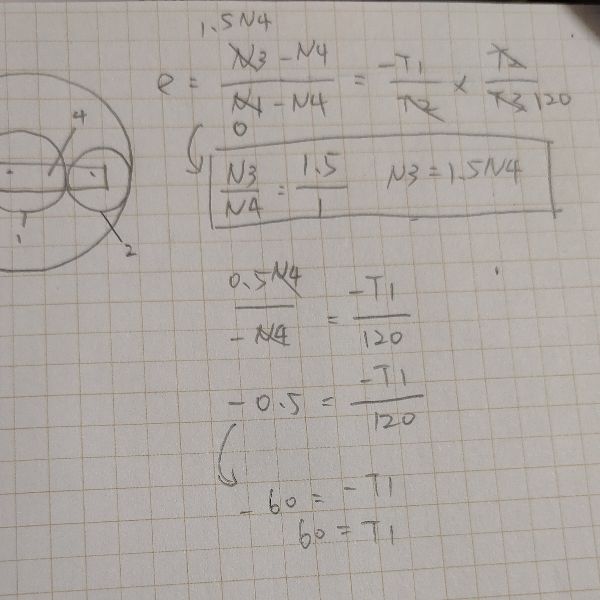 1.5N4
e = N3 - N4 / N1 - N4 = -T1 / T2 × T2 / T3 120
0
N3 / N4 = 1.5 / 1 N3 = 1.5N4
4
1
2
0.5N4 / -N4 = -T1 / 120
-0.5 = -T1 / 120
-60 = -T1
60 = T1